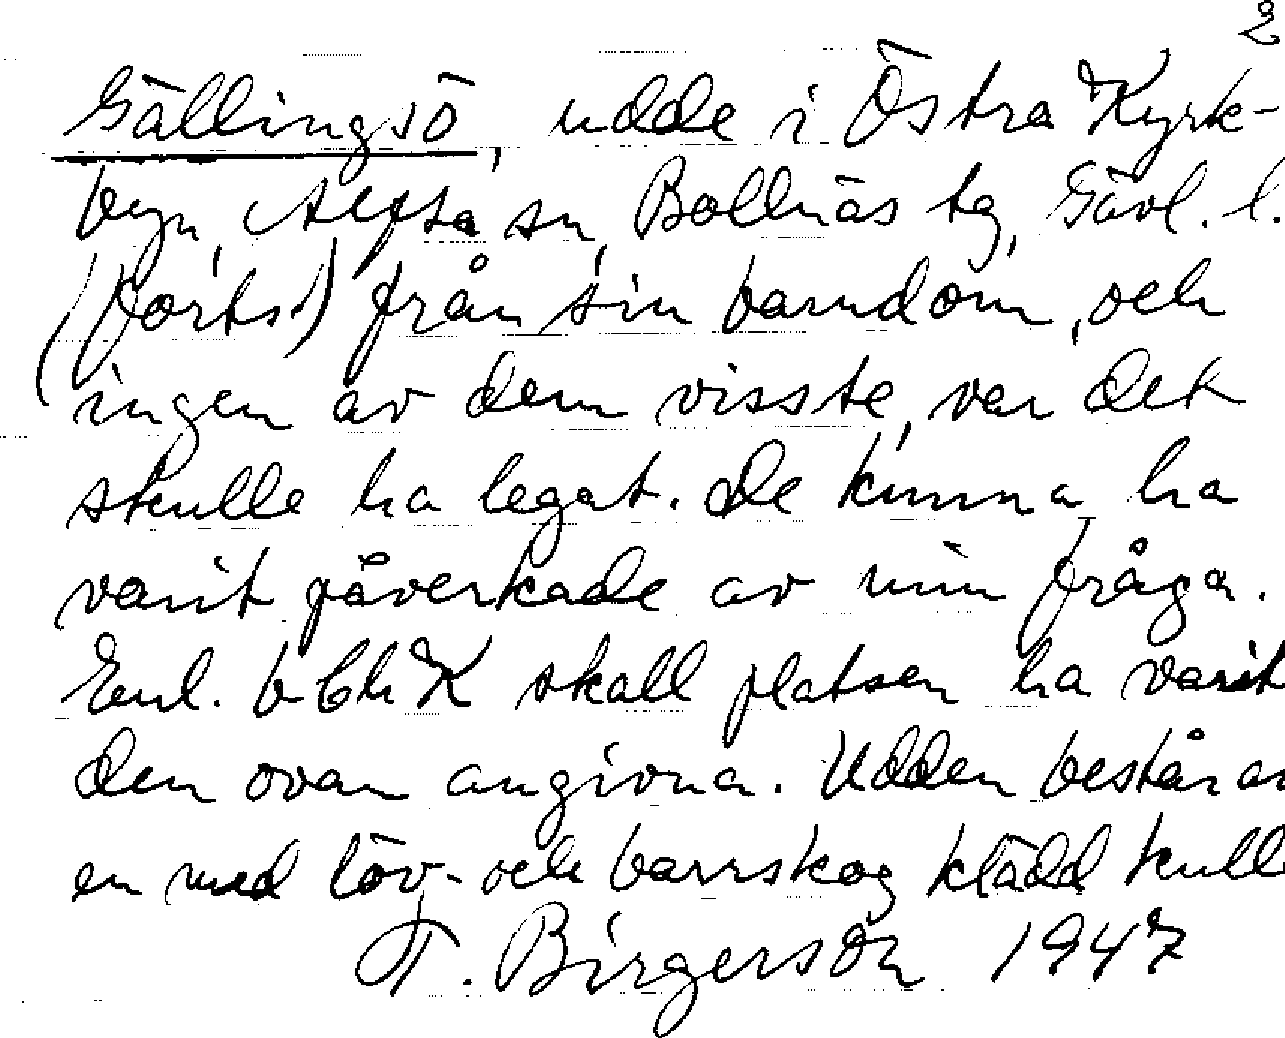 2
Gällingsö, udde i Östra Kyrk-
byn, Alfta sn, Bollnäs tg, Gävl. l.
(forts.) från sin barndom, och
ingen av dem visste, var det
skulle ha legat. De kunna ha
varit påverkade av min fråga.
Enl. b Ch K skall platsen ha varit
den ovan angivna. Udden består av
en med löv- och barrskog klädd kulle
T. Birgerson 1947